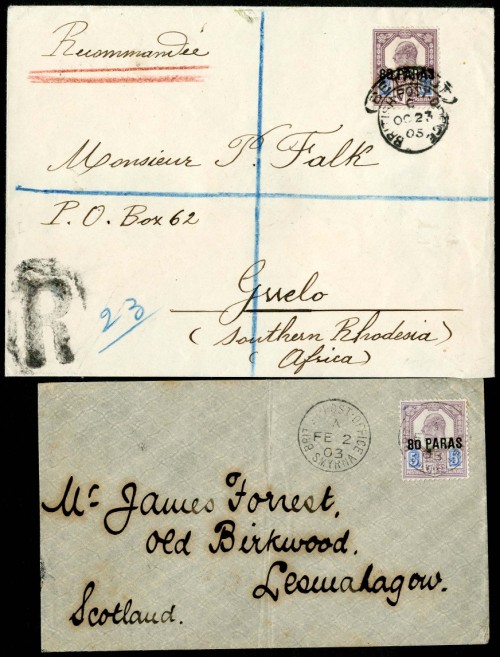 Recommandée
80 PARAS
BRITISH POST OFFICE
OC 23
05
Monsieur P. Falk
P. O. Box 62
Gwelo
(Southern Rhodesia)
(Africa)
R
23
BRIT POST-OFFICE
A
FE 2
03
SMYRNA
80 PARAS
5 5
Mr James Forrest,
Old Birkwood.
Lesmahagow.
Scotland.